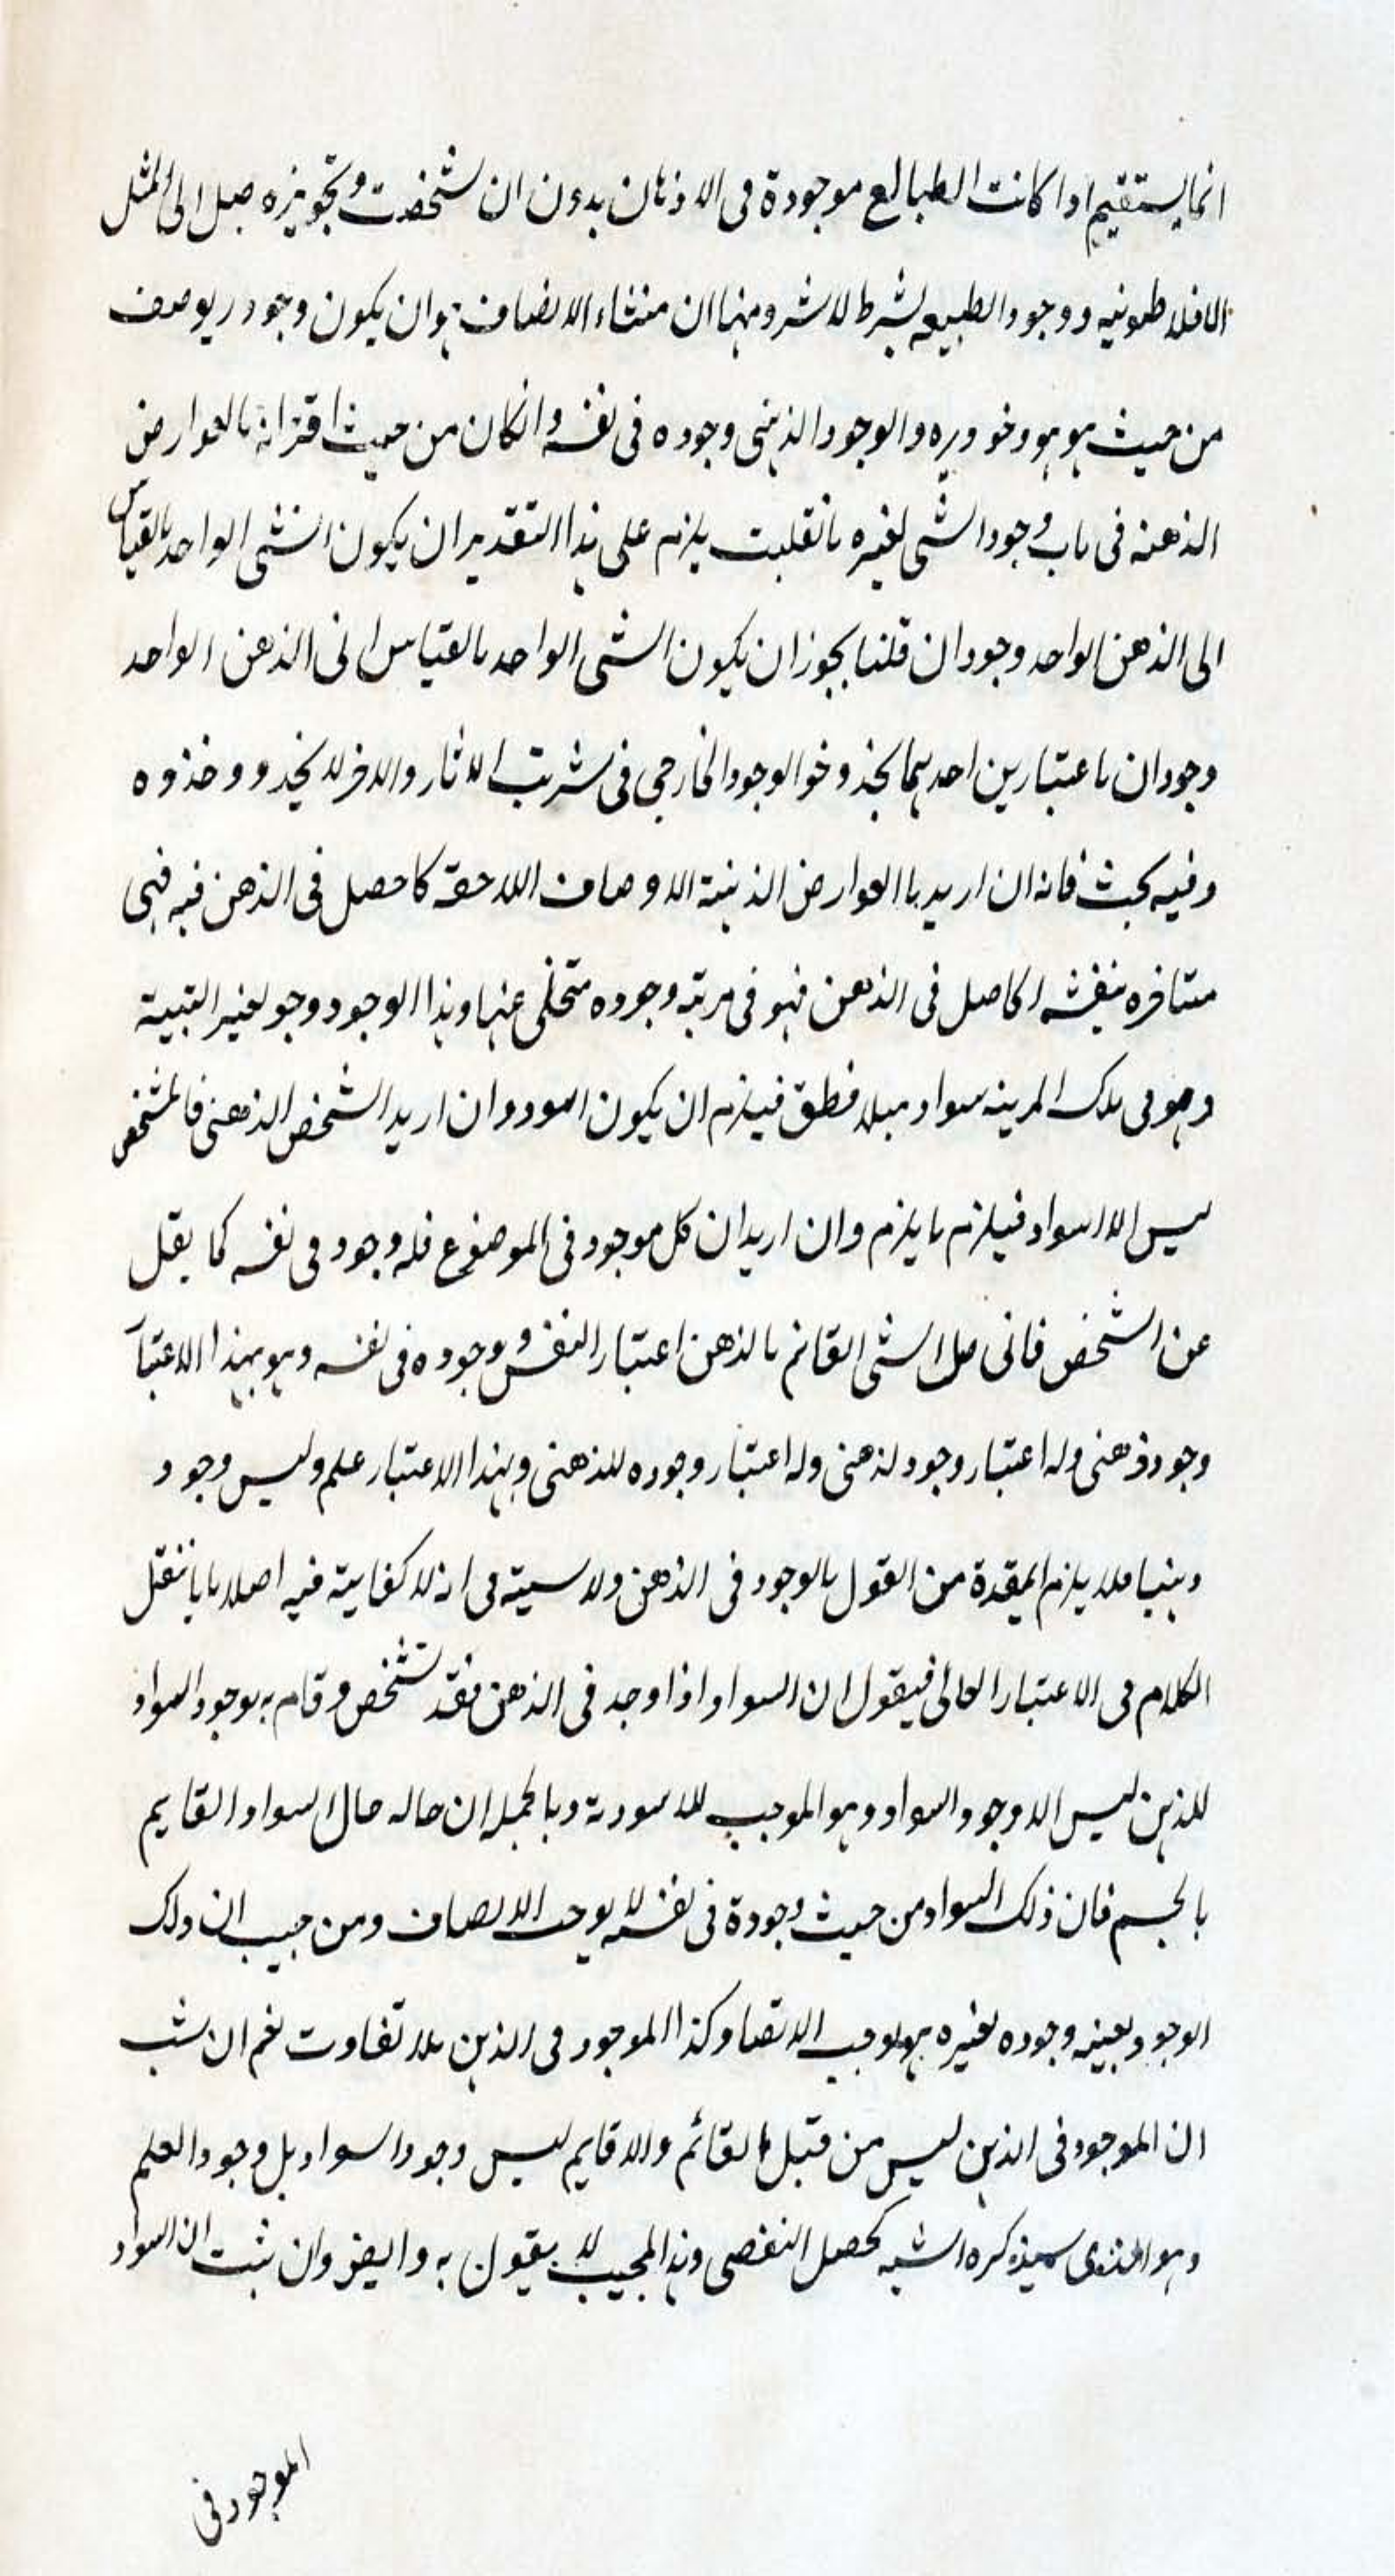 انما يستقيم اذا كانت الطبايع موجودة فى الاذهان بدون ان تشخصت وتجويزه جبل الى المثل
الافلاطونيه ووجود الطبيعه بشرط لا شر ومنها ان منشاء الاتصاف هو ان يكون وجود ر يوصف
من حيث هو هو وخو وره والوجود الذهنى وجوده فى نفسه وانكان من حيث اقترانه بالعوارض
الذهنه فى باب وجود الشى لغيره فانقلبت يلزم على هذا التقدير ان يكون الشى الواحد بالقياس
الى الذهن الواحد وجودان قلنا يجوز ان يكون الشى الواحد بالقياس الى الذهن الواحد
وجودان باعتبارين احدهما يحذ وخو الوجود الخارجى فى ترتب الاثار والاخر لا يحد و وخذوه
وفيه بحث فانه ان اريد بالعوارض الذهنية الاوصاف اللاحقة كاحصل فى الذهن فيه فهى
متافره بنفسه الحاصل فى الذهن فهو فى مرتبه وجوده متخلى عنها وهذا الوجود وجو لغير القبية
وهو فى تلك المرينه سواد مبلا فطق فيلزم ان يكون اسود وان اريد الشخص الذهنى فالمشخص
ليس الا السواد فيلزم ما يلزم وان اريد ان كل موجود فى الموضوع فله وجود فى نفسه كما يقل
عن الشخص فانى مل الشى القائم بالذهن اعتبار النفس وجوده فى نفسه وهو بهذا الاعتبار
وجود ذهنى وله اعتبار وجود لذهنى وله اعتبار وجوده للذهنى وبهذا الاعتبار علم وليس وجود
وبنيا فلا يلزم المقدة من القول بالوجود فى الذهن ولا سيته فى انه لا كفاية فيه اصلا بانا ننقل
الكلام فى الاعتبار الحالى فيقول ان السواد اذا وجد فى الذهن فقد تشخص وقام به بوجود السواد
للذهن ليس الا وجود السواد وهو الموجب للاسودية وبالجمله ان حاله حال السواد القايم
بالجسم فان ذلك السواد من حيث وجودة فى نفسه لا يوجب الاتصاف ومن حيث ان ذلك
الوجود بعينه وجوده لغيره هو يوجب الاتصا وكذا الموجود فى الذهن بلا تفاوت نعم ان شب
ان الموجود فى الذهن ليس من قبل القائم والا قايم ليس وجود السواد بل وجود العلم
وهو الذى سيذكره الشبه يحصل التفصى وهذا المجيب لا يقول به وايض وان ثبت ان السواد
الموجود فى